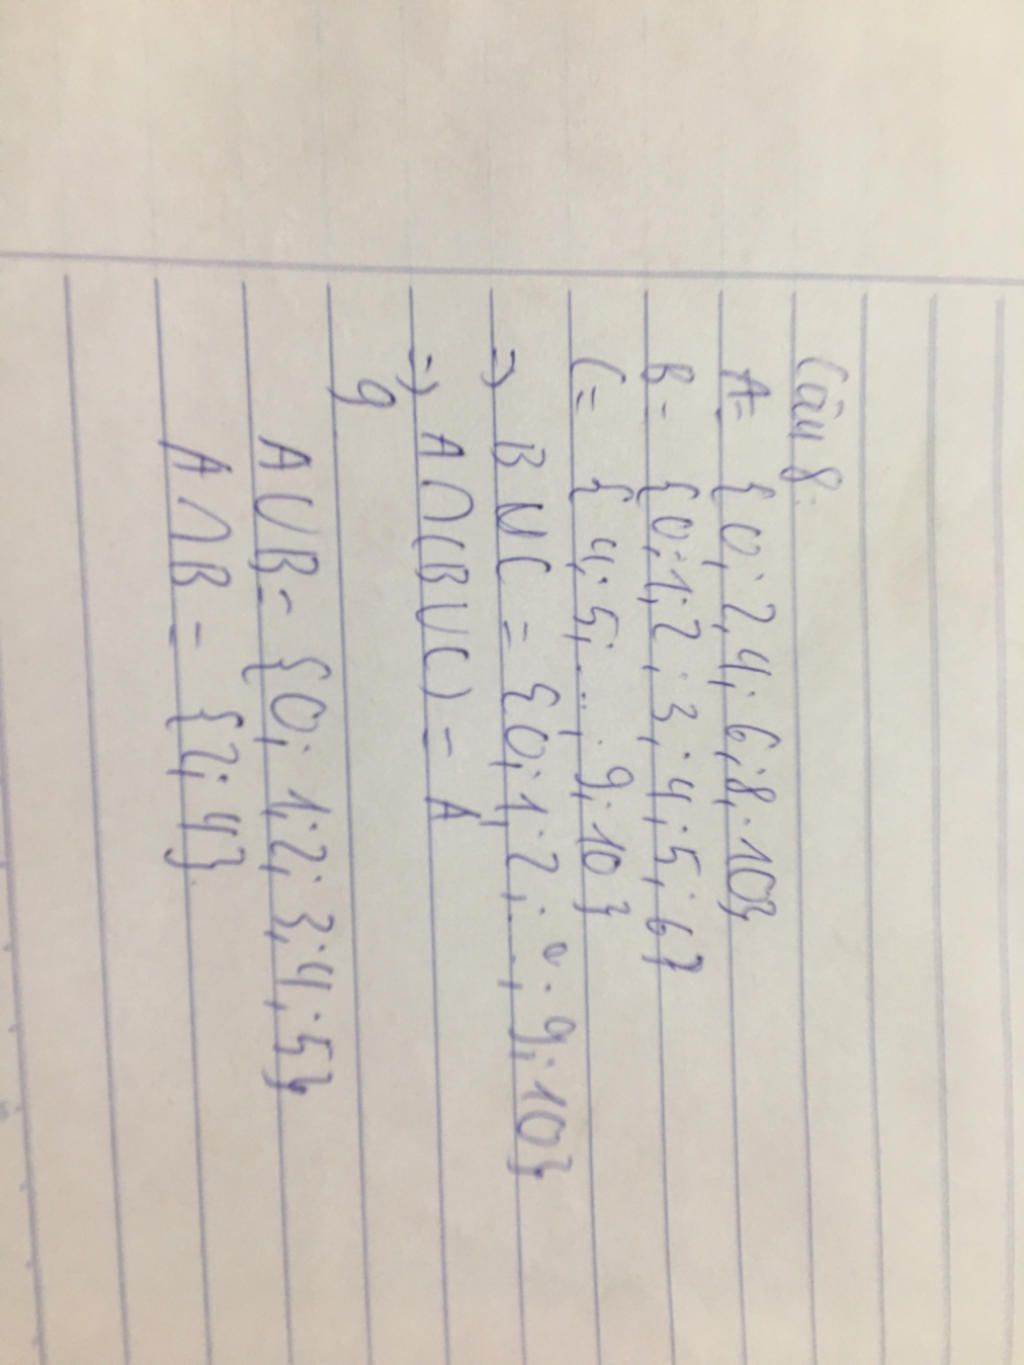 Câu 8.
A= {0; 2,4; 6;8; 10}
B= {0;1;2;3;4;5;6}
C= {4;5;...; 9;10}
=) B ∪ C = {0;1;2;...; 9;10}
=) A∩(B∪C) = A
9
A∪B= {0; 1;2; 3;4;5}
A∩B = {2; 4}